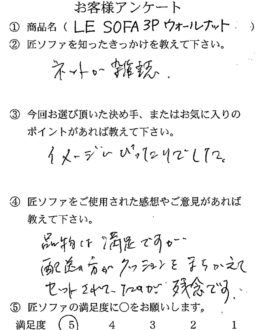 お客様アンケート
① 商品名 ( LE SOFA 3P ウォールナット )
② 匠ソファを知ったきっかけを教えて下さい。
ネットか雑誌.
③ 今回お選び頂いた決め手、またはお気に入りの
ポイントがあれば教えて下さい。
イメージにぴったりでした。
④ 匠ソファをご使用された感想やご意見があれば
教えて下さい。
品物は満足ですが
配送の方がクッションをまちがえて
セットされていたのが残念です.
⑤ 匠ソファの満足度に○をお願いします。
満足度 5 4 3 2 1